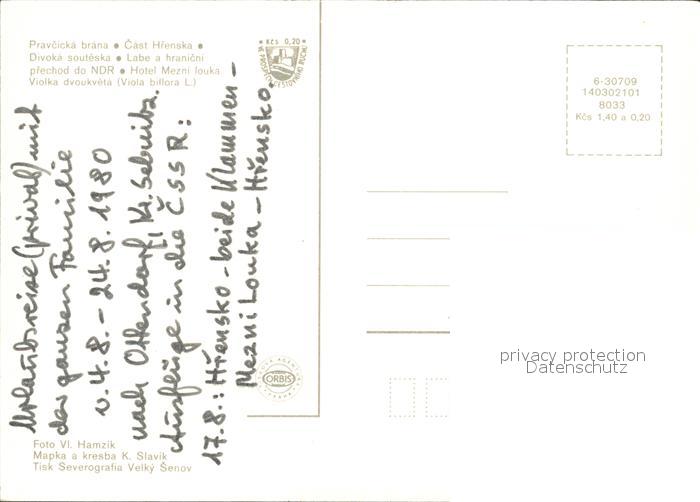 Pravčická brána ● Část Hřenska ●
Divoká soutěska ● Labe a hraniční
přechod do NDR ● Hotel Mezní louka
Violka dvoukvětá (Viola biflora L.)
Kčs 0,20
6-30709
140302101
8033
Kčs 1,40 a 0,20
Urlaubsreise (privat) mit
der ganzen Familie
v. 4.8. – 24.8. 1980
nach Ottendorf, Kr. Sebnitz.
Ausflüge in die ČSSR:
17.8.: Hřensko - beide Klammen -
Mezní Louka - Hřensko.
ORBIS
privacy protection
Datenschutz
Foto Vl. Hamzík
Mapka a kresba K. Slavík
Tisk Severografia Velký Šenov